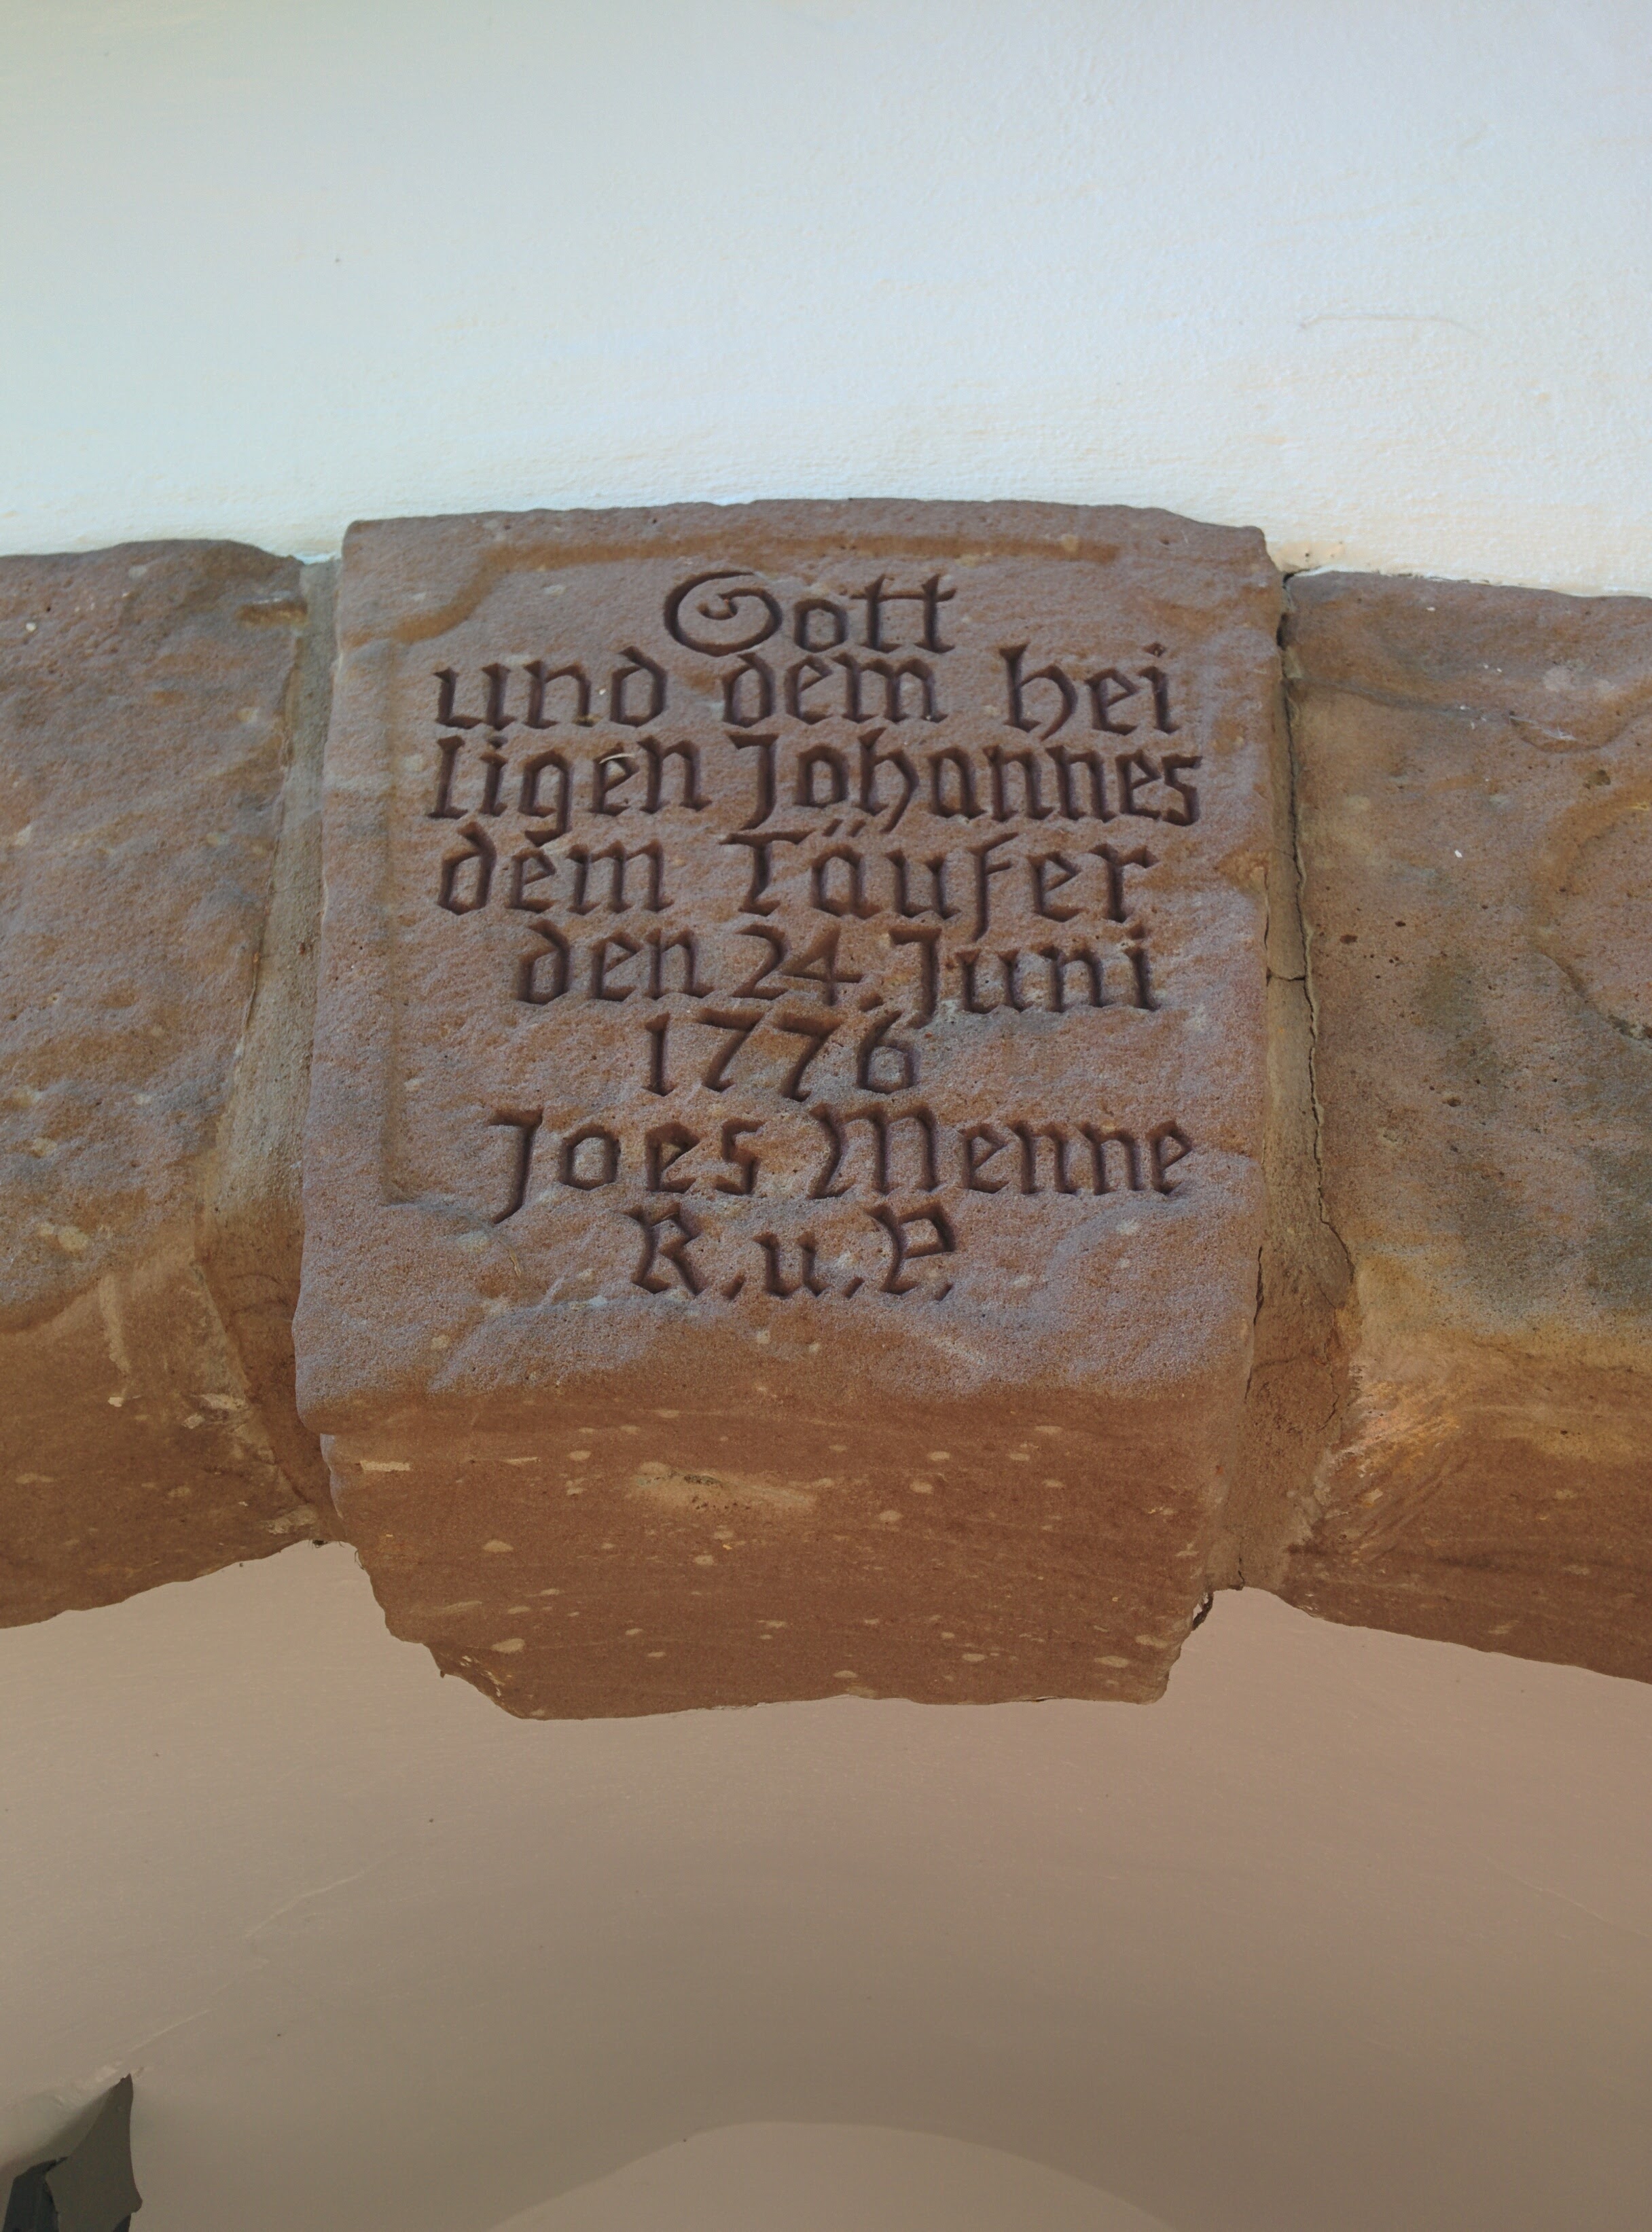 Gott
und dem hei
ligen Johannes
dem Täufer
den 24. Juni
1776
Joes Menne
R. u. P.